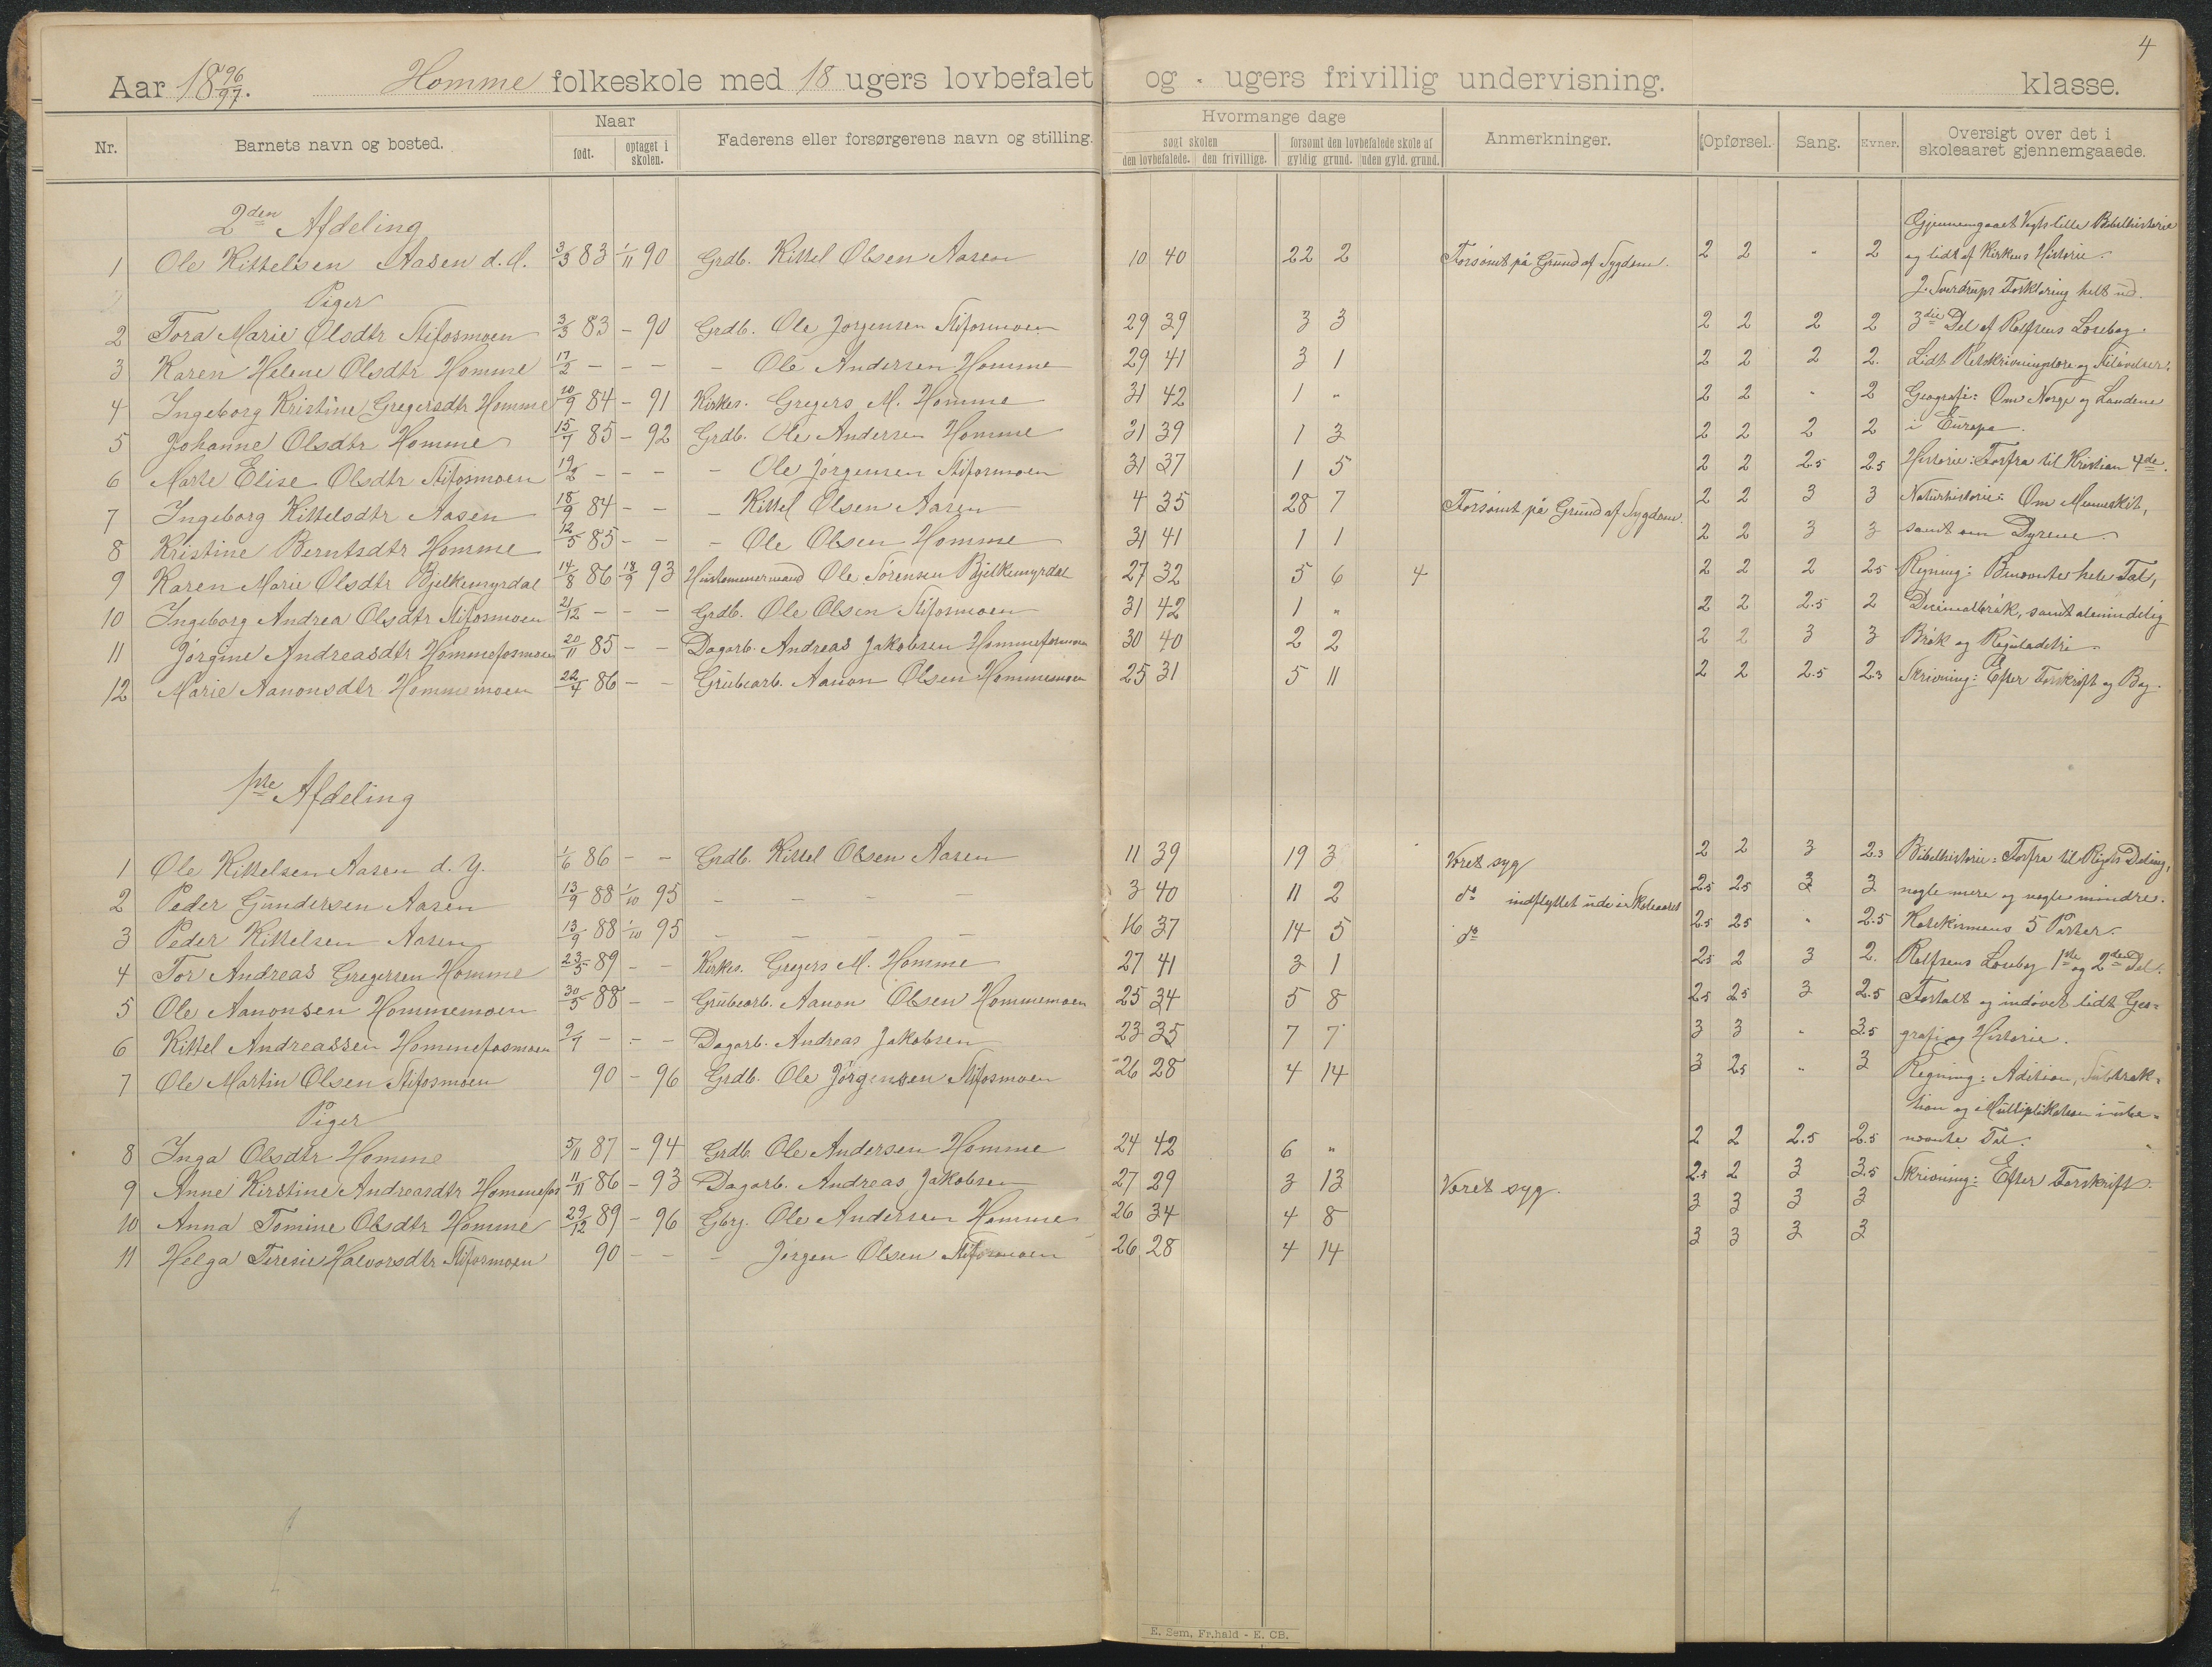 4
Aar 18 96/97. Homme folkeskole med 18 ugers lovbefalet og - ugers frivillig undervisning. klasse.
Nr. Barnets navn og bosted. Naar født. optaget i skolen. Faderens eller forsørgerens navn og stilling. Hvormange dage søgt skolen den lovbefalede. den frivillige. forsømt den lovbefalede skole af gyldig grund. uden gyld. grund. Anmerkninger. Opførsel. Sang. Evner. Oversigt over det i skoleaaret gjennemgaaede.
2den Afdeling Gjennemgaaet Vogts lille Bibelhistorie
1 Ole Kittelsen Aasen d. Æ. 3/3 83 1/11 90 Grdb. Kittel Olsen Aasen 10 40 22 2 Forsømt på Grund af Sygdom. 2 2 " 2 og lidt af Kirkens Historie.
Piger J. Sverdrups Forklaring helt ud.
2 Tora Marie Olsdtr Stifosmoen 3/3 83 - 90 Grdb. Ole Jørgensen Stifosmoen 29 39 3 3 2 2 2 2 3die Del af Rolfsens Læsebog.
3 Karen Helene Olsdtr Homme 17/2 - - - - Ole Andersen Homme 29 41 3 1 2 2 2 2. Lidt Retskrivningslære og Stiløvelser.
4 Ingeborg Kristine Gregersdtr Homme 10/9 84 - 91 Kirkes. Gregers M. Homme 31 42 1 " 2 2 " 2 Geografi: Om Norge og Landene
5 Johanne Olsdtr Homme 15/7 85 - 92 Grdb. Ole Andersen Homme 31 39 1 3 2 2 2 2 i Europa.
6 Marte Elise Olsdtr Stifosmoen 19/2 - - - - Ole Jørgensen Stifosmoen 31 37 1 5 2 2 2.5 2.5 Historie: Forfra til Kristian 4de.
7 Ingeborg Kittelsdtr Aasen 18/9 84 - - - Kittel Olsen Aasen 4 35 28 7 Forsømt på Grund af Sygdom. 2 2 3 3 Naturhistorie: Om Mennesket,
8 Kristine Berntsdtr Homme 12/5 85 - - - Ole Olsen Homme 31 41 1 1 2 2 3 3 samt om Dyrene.
9 Karen Marie Olsdtr Bjelkemyrdal 14/8 86 18/9 93 Hustømmermand Ole Sørensen Bjelkemyrdal 27 32 5 6 4 2 2 2 2.5 Regning: Benævnte hele Tal,
10 Ingeborg Andrea Olsdtr Stifosmoen 21/12 - - - Grdb. Ole Olsen Stifosmoen 31 42 1 " 2 2 2.5 2 Decimalbrøk, samt almindelig
11 Jørgine Andreasdtr Hommefosmoen 20/11 85 - - Dagarb. Andreas Jakobsen Hommefosmoen 30 40 2 2 2 2 3 3 Brøk og Reguladetri.
12 Marie Aanonsdtr Hommemoen 22/4 86 - - Grubearb. Aanon Olsen Hommemoen 25 31 5 11 2 2 2.5 2.3 Skrivning: Efter Forskrift og Bog.
1ste Afdeling
1 Ole Kittelsen Aasen d. Y. 1/6 86 - - Grdb. Kittel Olsen Aasen 11 39 19 3 Været syg 2 2 3 2.3 Bibelhistorie: Forfra til Rigets Deling,
2 Peder Gundersen Aasen 13/9 88 1/10 95 - - - - 3 40 11 2 do indflyttet ude i Skoleaaret 2.5 2.5 3 3 nogle mere og nogle mindre.
3 Peder Kittelsen Aasen 13/9 88 1/10 95 - - - - 16 37 14 5 do 2.5 2.5 " 2.5 Katekismens 5 Parter.
4 Tor Andreas Gregersen Homme 23/5 89 - - Kirkes. Gregers M. Homme 27 41 3 1 2.5 2 3 2. Rolfsens Læsebog 1ste og 2den Del.
5 Ole Aanonsen Hommemoen 30/5 88 - - Grubearb. Aanon Olsen Hommemoen 25 34 5 8 2.5 2.5 3 2.5 Fortalt og indøvet lidt Geo-
6 Kittel Andreassen Hommefosmoen 9/7 - - - Dagarb. Andreas Jakobsen 23 35 7 7 3 3 " 3.5 grafi og Historie.
7 Ole Martin Olsen Stifosmoen 90 - 96 Grdb. Ole Jørgensen Stifosmoen 26 28 4 14 3 2.5 " 3 Regning: Adition, Subtrak-
Piger tion og Multiplikation i ube-
8 Inga Olsdtr Homme 5/11 87 - 94 Grdb. Ole Andersen Homme 24 42 6 " 2 2 2.5 2.5 nævnte Tal.
9 Anne Kirstine Andreasdtr Hommefos 11/11 86 - 93 Dagarb. Andreas Jakobsen 27 29 3 13 Været syg. 2.5 2 3 3.5 Skrivning: Efter Forskrift.
10 Anna Tomine Olsdtr Homme 29/12 89 - 96 Gbrg. Ole Andersen Homme 26 34 4 8 3 3 3 3
11 Helga Teresie Halvorsdtr Stifosmoen 90 - - - Jørgen Olsen Stifosmoen 26 28 4 14 3 3 3 3
E. Sem, Fr.hald - E. CB.